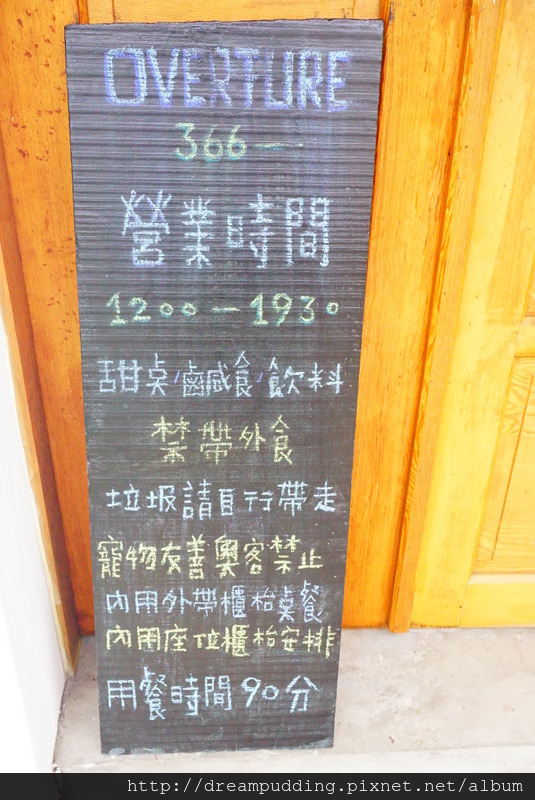 OVERTURE
366—
營業時間
1200—1930
甜桌,鹹食,飲料
禁帶外食
垃圾請自行帶走
寵物友善奧客禁止
內用外帶櫃枱桌餐
內用座位櫃枱安排
用餐時間90分
http://dreampudding.pixnet.net/album